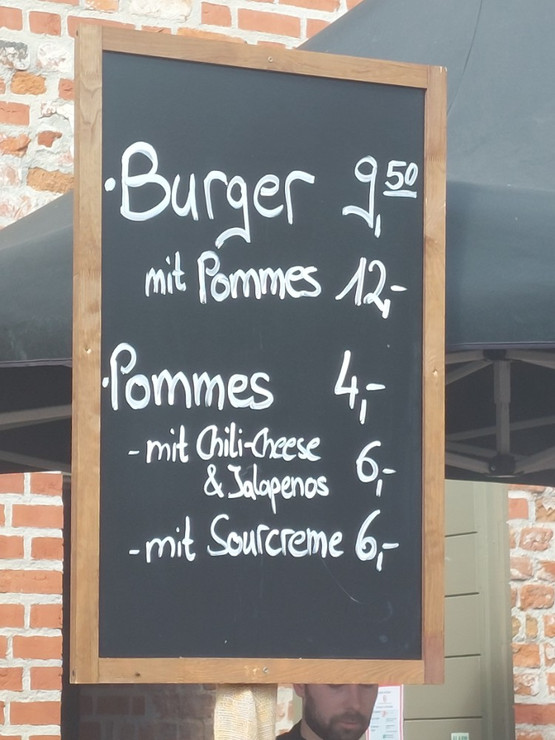 ·Burger 9,50
mit Pommes 12,-
·Pommes 4,-
-mit Chili-Cheese
& Jalapenos 6,-
-mit Sourcreme 6,-